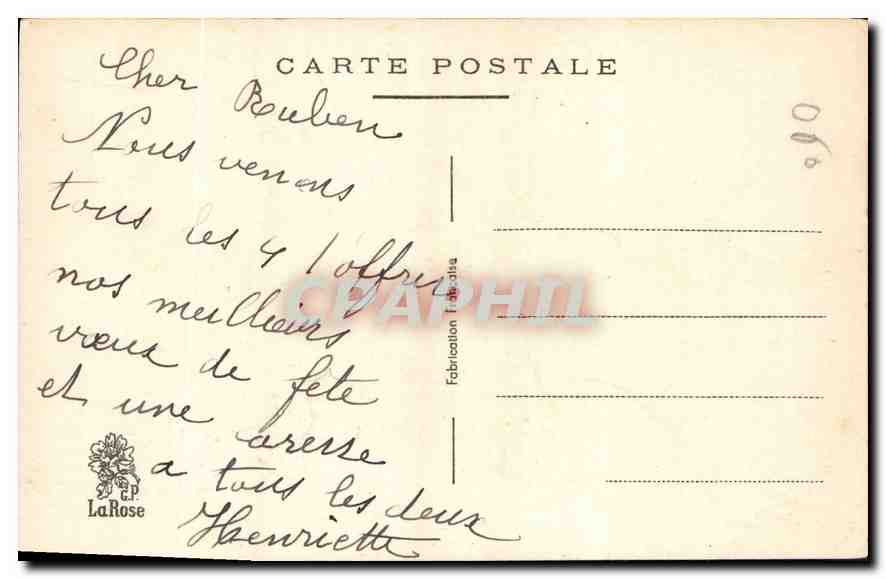 CARTE POSTALE
Cher Ruben
Nous venons
tous les 4 t'offrir
nos meilleurs
vœux de fête
et une caresse
a tous les deux
Henriette
Fabrication Française
G.P.
La Rose
CPAPHIL
0,90